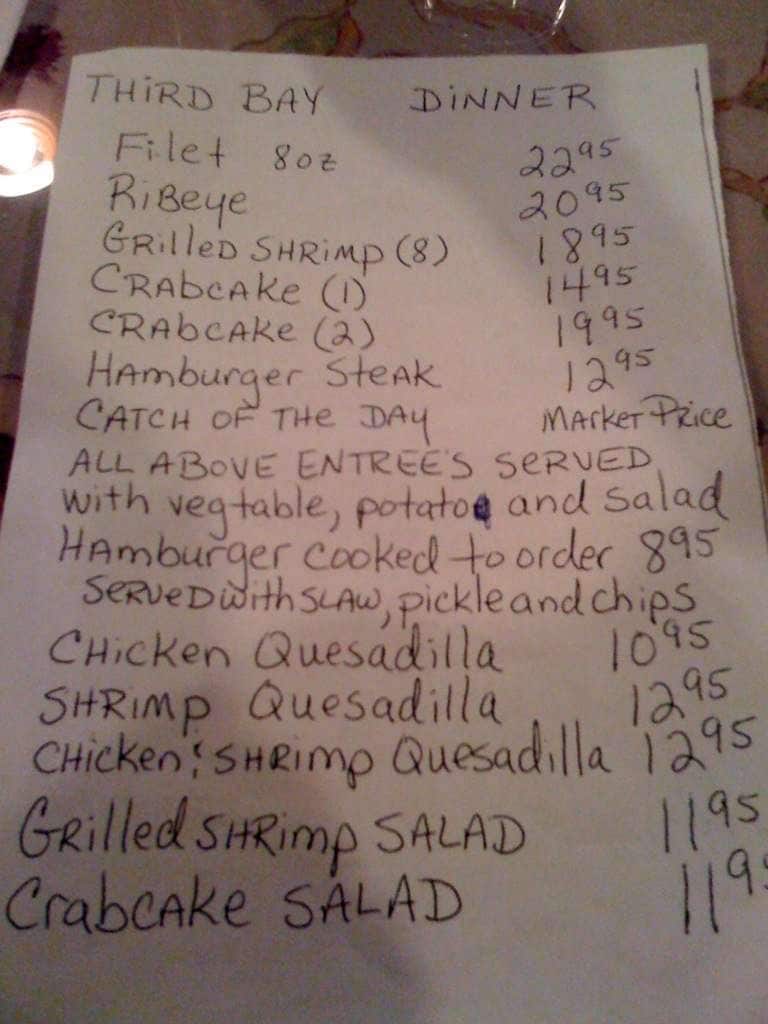 THIRD BAY DINNER
Filet 8oz 22 95
RiBeye 20 95
GRilleD SHRimp (8) 18 95
CRAbCAKe (1) 14 95
CRAbCAKe (2) 19 95
HAmburger SteAK 12 95
CATCH OF THE DAY MARKet PRice
ALL ABOVE ENTREE'S SERVED
with vegtable, potatoe and salad
HAmburger cooked to order 8 95
SeRveD with SLAW, pickle and chips
CHicken Quesadilla 10 95
SHRimp Quesadilla 12 95
CHicken & SHRimp Quesadilla 12 95
GRilled SHRimp SALAD 11 95
CrabCAKe SALAD 11 95